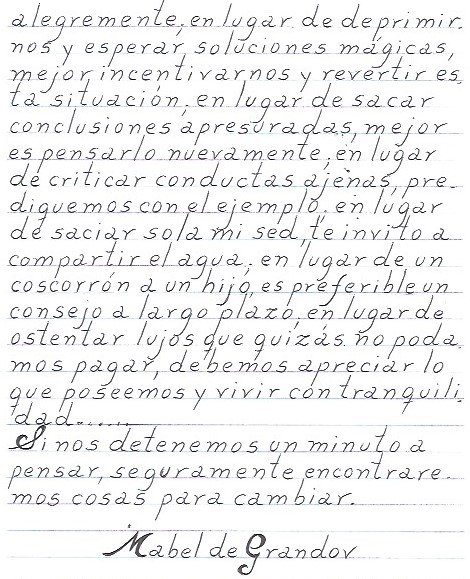 alegremente; en lugar de deprimir.
nos y esperar, soluciones mágicas,
mejor, incentivarnos y revertir es.
ta situación; en lugar de sacar
conclusiones apresuradas, mejor
es pensarlo nuevamente; en lugar
de criticar conductas ajenas, pre.
diquemos con el ejemplo; en lugar
de saciar sola mi sed, te invito a
compartir el agua; en lugar de un
coscorrón a un hijo, es preferible un
consejo a largo plazo; en lugar de
ostentar lujos que quizás no poda.
mos pagar, debemos apreciar lo
que poseemos y vivir con tranquili.
dad......
Si nos detenemos un minuto a
pensar, seguramente encontrare.
mos cosas para cambiar.
Mabel de Grandov